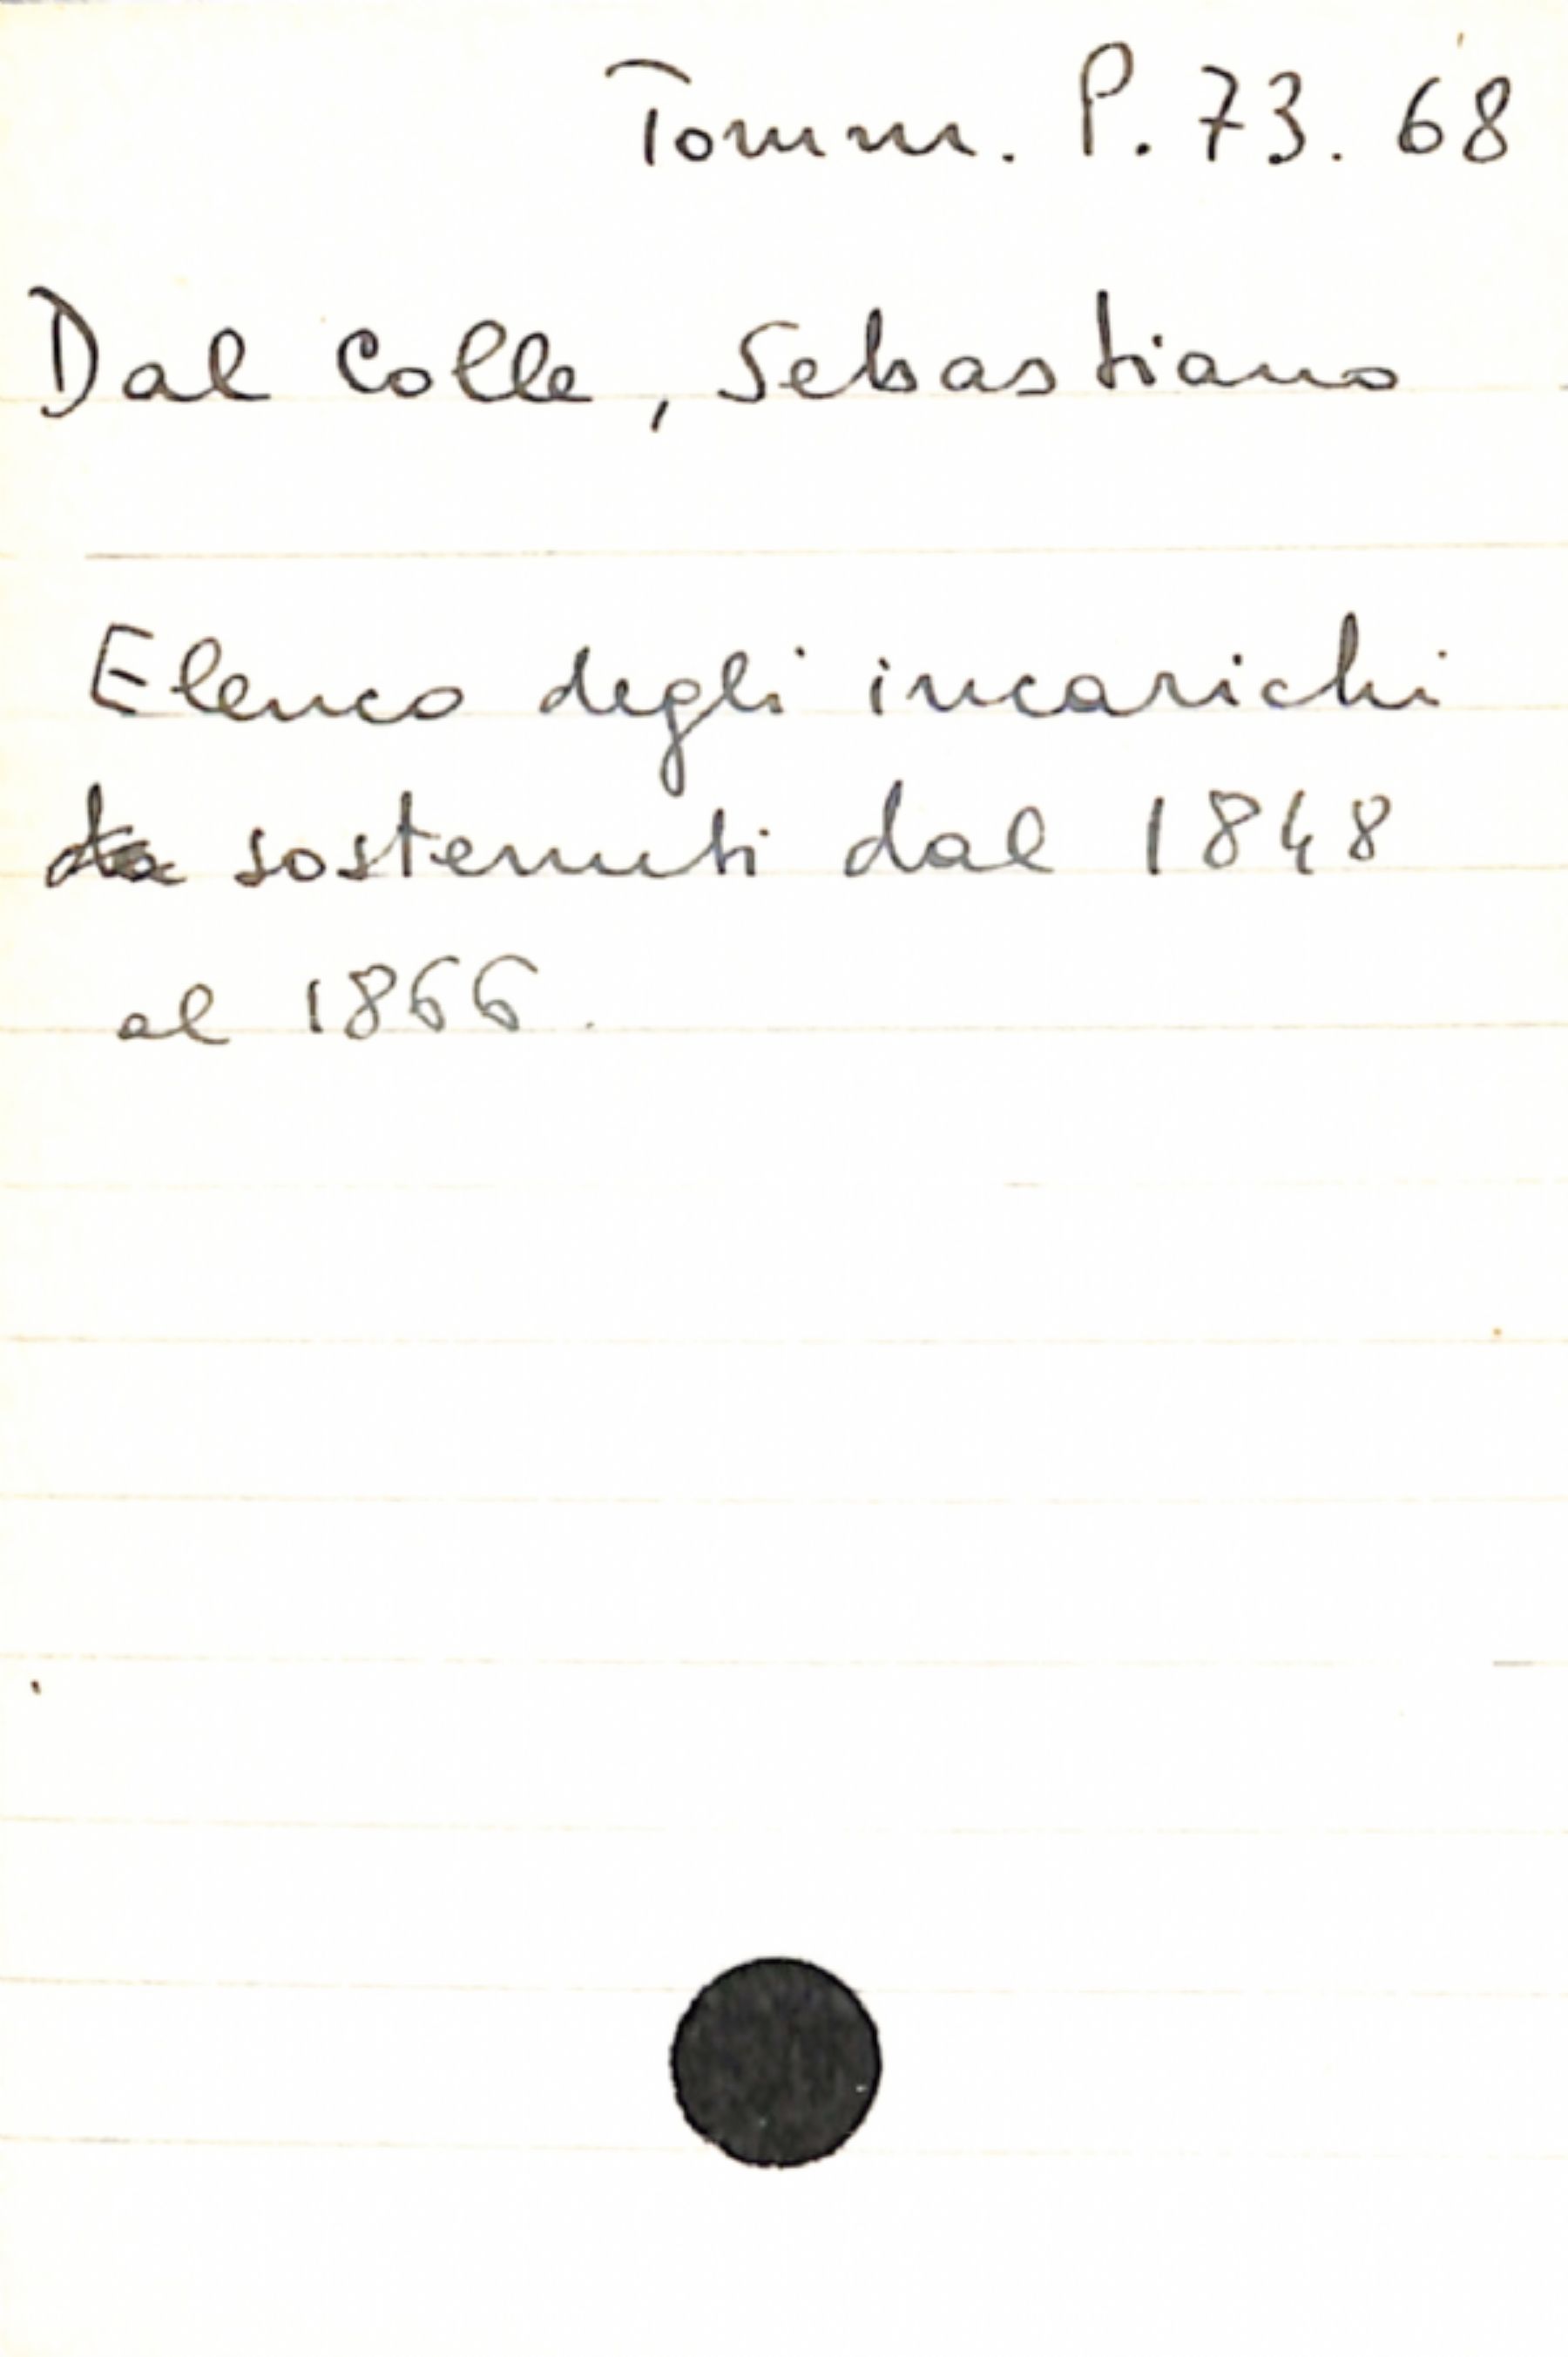 Tomm. P. 73. 68
Dal Colle, Sebastiano
Elenco degli incarichi
sostenuti dal 1848
al 1866.